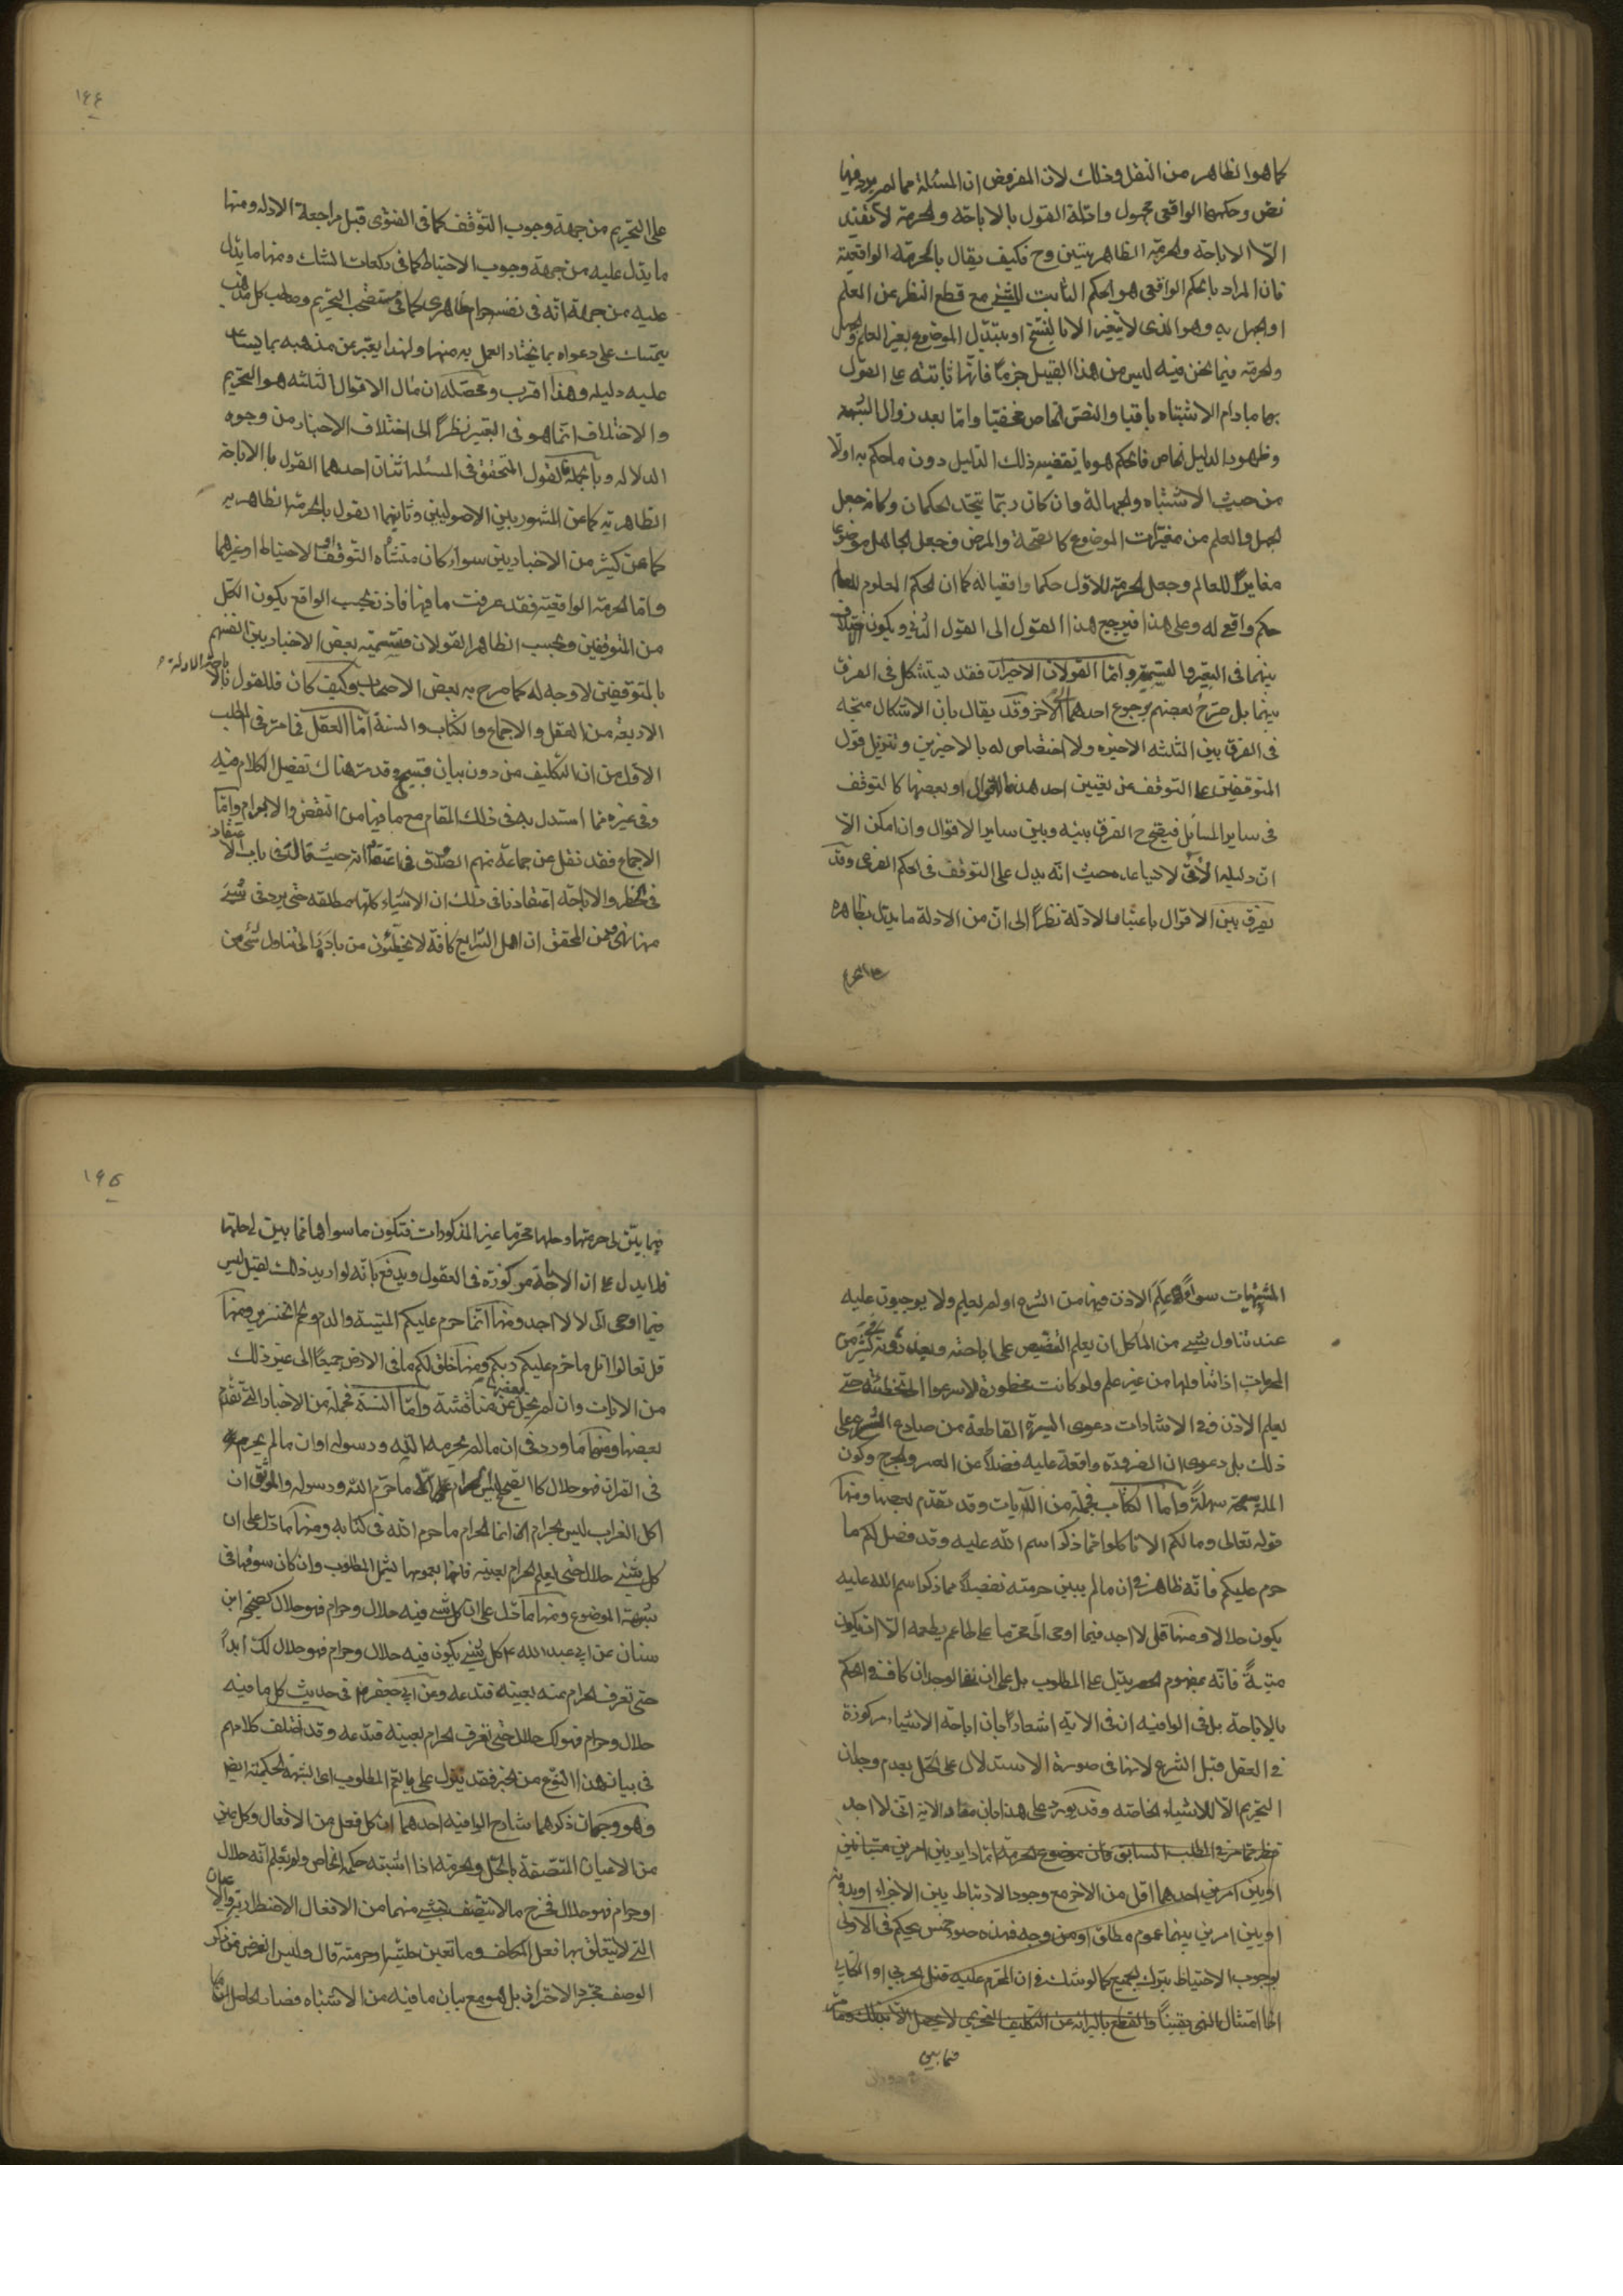 كما هو الظاهر من النقل وذلك لان المفروض ان المسئلة مما لم يرد فيها
نص وحكمها الواقعى مجهول وادلة القول بالاباحة والحرمة لا تفيد
الا الاباحة والحرمة الظاهريتين وح فكيف يقال بالحرمة الواقعية
فان المراد بالحكم الواقعى هو الحكم الثابت للشئ مع قطع النظر عن العلم
او الجهل به وهو الذى لا يتغير الا بالنسخ او بتبدل الموضوع بغير العلم والجهل
والحرمة فيما نحن فيه ليس من هذا القبيل جزما فانها ثابتة على القول
بها مادام الاشتباه باقيا والنص الخاص مخفيا واما بعد زوال الشبهة
وظهور الدليل الخاص فالحكم هو ما يقتضيه ذلك الدليل دون ما حكم به اولا
من حيث الاشتباه والجهالة وان كان ربما يتحد الحكمان وكانه جعل
الجهل والعلم من مغيرات الموضوع كالصحة والمرض فجعل الجاهل موضوعا
مغايرا للعالم وجعل الحرمة للاول حكما واقعيا له كما ان الحكم المعلوم للعالم
حكم واقعى له وعلى هذا فيرجع هذا القول الى القول الثانى ويكون اختلاف
بينهما فى التعبير والتسمية واما القولان الاخيران فقد يستشكل فى الفرق
بينهما بل صرح بعضهم برجوع احدهما الى الاخر وقد يقال بان الاشكال متجه
فى الفرق بين الثلثة الاخيرة ولا اختصاص له بالاخيرين وتنزيل قول
المتوقفين على التوقف عن تعيين احد هذه الاقوال او بعضها كالتوقف
فى ساير المسائل فيتضح ح الفرق بينه وبين ساير الاقوال وان امكن الا
ان دليله الاتى لا يساعده حيث انه يدل على التوقف فى الحكم الفرعى وقد
يفرق بين الاقوال باعتبار الادلة نظرا الى ان من الادلة ما يدل بظاهره
على التحريم
١٤٤
على التحريم من جهة وجوب التوقف كما فى الفتوى قبل مراجعة الادلة ومنها
ما يدل عليه من جهة وجوب الاحتياط كما فى ركعات الشك ومنها ما يدل
عليه من جهة انه فى نفسه حرام ظاهرى كما فى مستصحب التحريم وصاحب كل مذهب
يتمسك على دعواه بما يختار العمل به منها ولهذا يعبر عن مذهبه بما يساعد
عليه دليله وهذا اقرب ومحصله ان مال الاقوال الثلثة هو التحريم
والاختلاف انما هو فى التعبير نظرا الى اختلاف الاخبار من وجوه
الدلالة وبالجملة فالقول المتحقق فى المسئلة اثنان احدهما القول بالاباحة
الظاهرية كما عن المشهور بين الاصوليين وثانيهما القول بالحرمة الظاهرية
كما عن كثير من الاخباريين سواء كان منشأه التوقف او الاحتياط او غيرهما
واما الحرمة الواقعية فقد عرفت ما فيها فاذن بحسب الواقع يكون الكل
من المتوقفين وبحسب الظاهر القولان فتسمية بعض الاخباريين انفسهم
بالمتوقفين لا وجه له كما صرح به بعض الاصحاب وكيف كان فللقول بالاباحة الادلة
الاربعة من العقل والاجماع والكتاب والسنة اما العقل فما مر فى المطلب
الاول من ان التكليف من دون بيان قبيح وقد مر هناك تفصيل الكلام فيه
وفى غيره مما استدل به فى ذلك المقام مع ما فيها من النقض والابرام واما
الاجماع فقد نقل عن جماعة منهم الصدوق فى اعتقاداته حيث قال فى باب الاعتقاد
فى الحظر والاباحة اعتقادنا فى ذلك ان الاشياء كلها مطلقة حتى يرد فى شئ
منها نهى وعن المحقق ان اهل الشرايع كافة لا يخطئون من بادر الى تناول شئ من
المشتبهات سواء علم الاذن فيها من الشرع او لم يعلم ولا يوجبون عليه
عند تناول شئ من الماكل ان يعلم التنصيص على اباحته ويعذرونه فى كثير من
المحرمات اذا تناولها من غير علم ولو كانت محظورة لاسرعوا الى تخطئته حتى
يعلم الاذن وفى الاشارات دعوى السيرة القاطعة من صادع الشرع على
ذلك بل دعوى ان الضرورة واقعة عليه فضلا عن العسر والحرج وكون
الملة سمحة سهلة واما الكتاب فجملة من الايات وقد تقدم بعضها ومنها
قوله تعالى ومالكم الا تاكلوا مما ذكر اسم الله عليه وقد فصل لكم ما
حرم عليكم فانه ظاهر فى ان ما لم يبين حرمته تفصيلا مما ذكر اسم الله عليه
يكون حلالا ومنها قل لا اجد فيما اوحى الى محرما على طاعم يطعمه الا ان يكون
ميتة فانه بمفهوم الحصر يدل على المطلوب بل على ان نفى الوجدان كاف فى الحكم
بالاباحة بل فى الوافيه ان فى الاية اشعارا بان اباحة الاشياء مركوزة
فى العقل قبل الشرع لانها فى صورة الاستدلال على الحل بعدم وجدان
التحريم الا للاشياء الخاصة وقد يورد على هذا بان مفاد الاية انى لا اجد
فظهر مما مر فى المطلب السابق فان موضوع الحرمة اما داير بين امرين متباينين
او بين امرين احدهما اقل من الاخر مع وجود الارتباط بين الاجزاء او بدونه
او بين امرين بينهما عموم مطلق او من وجه فهذه صور خمس يحكم فى الاولى
بوجوب الاحتياط بترك الجميع كما لو شك فى ان المحرم عليه قتل الحربى او الكتابى
اذا امتثال النهى يقينا والقطع بالبرائة عن التكليف التحريمى لا يحصل الا بذلك ومما مر
فيما بين
١٤٥
فيما بين لى حرمتها وحلها محرما غير المذكورات فتكون ما سواها مما بين لى حلها
فلا يدل على ان الاباحة مركوزة فى العقول ويدفع بانه لو اريد ذلك لقيل ليس
فيما اوحى الى لا لا اجد ومنها انما حرم عليكم الميتة والدم ولحم الخنزير ومنها
قل تعالوا اتل ما حرم عليكم ربكم ومنها خلق لكم ما فى الارض جميعا الى غير ذلك
من الايات وان لم يخل بعضها عن مناقشة واما السنة فجملة من الاخبار التى تقدم
بعضها ومنها ما ورد فى ان ما لم يحرمه الله ورسوله او ان ما لم يحرم
فى القران فهو حلال كالصحيح ليس الحرام الا ما حرم الله ورسوله والموثق ان
اكل الغراب ليس بحرام انما الحرام ما حرم الله فى كتابه ومنها ما دل على ان
كل شئ حلال حتى يعلم الحرام بعينه فانها بعمومها تشمل المطلوب وان كان سوقها فى
شبهة الموضوع ومنها ما دل على ان كل شئ فيه حلال وحرام فهو حلال كصحيح ابن
سنان عن ابى عبد الله ع كل شئ يكون فيه حلال وحرام فهو حلال لك ابدا
حتى تعرف الحرام منه بعينه فتدعه وعن ابى جعفر ع فى حديث كل ما فيه
حلال وحرام فهو لك حلال حتى تعرف الحرام بعينه فتدعه وقد اختلف كلامهم
فى بيان هذا النوع من الخبر فقد ينزل على ما يتم المطلوب اعنى الشبهة الحكمية ايضا
وهو وجهان ذكرهما شارح الوافيه احدهما ان كل فعل من الافعال وكل عين
من الاعيان المتصفة بالحل والحرمة اذا اشتبه حكمه الخاص ولم تعلم انه حلال
او حرام فهو حلال فخرج ما لا يتصف بشئ منهما من الافعال الاضطرارية والاعيان
التى لا يتعلق بها فعل المكلف وما تعين حليته او حرمته قال وليس الغرض من ذكر
الوصف مجرد الاحتراز بل هو مع بيان ما فيه من الاشتباه فصار الحاصل ان ما